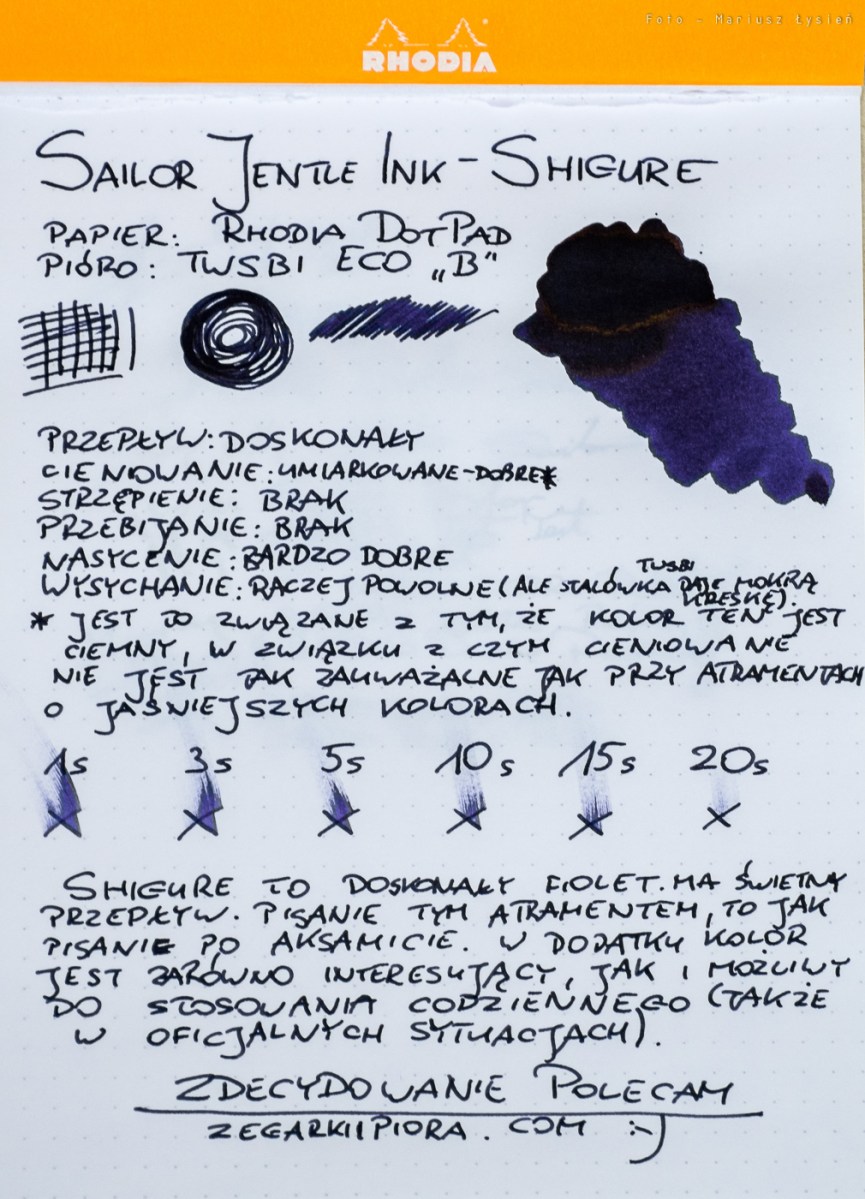 Foto - Mariusz Łysień
RHODIA
SAILOR JENTLE INK - SHIGURE
PAPIER: RHODIA DOTPAD
PIÓRO: TWSBI ECO „B"
PRZEPŁYW: DOSKONAŁY
CIENIOWANIE: UMIARKOWANE-DOBRE*
STRZĘPIENIE: BRAK
PRZEBIJANIE: BRAK
NASYCENIE: BARDZO DOBRE
WYSYCHANIE: RACZEJ POWOLNE (ALE STALÓWKA TWSBI DAJE MOKRĄ KRESKĘ).
* JEST TO ZWIĄZANE Z TYM, ŻE KOLOR TEN JEST
CIEMNY, W ZWIĄZKU Z CZYM CIENIOWANIE
NIE JEST TAK ZAUWAŻALNE JAK PRZY ATRAMENTACH
O JAŚNIEJSZYCH KOLORACH.
1s 3s 5s 10s 15s 20s
SHIGURE TO DOSKONAŁY FIOLET. MA ŚWIETNY
PRZEPŁYW. PISANIE TYM ATRAMENTEM, TO JAK
PISANIE PO AKSAMICIE. W DODATKU KOLOR
JEST ZARÓWNO INTERESUJĄCY, JAK I MOŻLIWY
DO STOSOWANIA CODZIENNEGO (TAKŻE
W OFICJALNYCH SYTUACJACH).
ZDECYDOWANIE POLECAM
ZEGARKIIPIORA.COM :-)